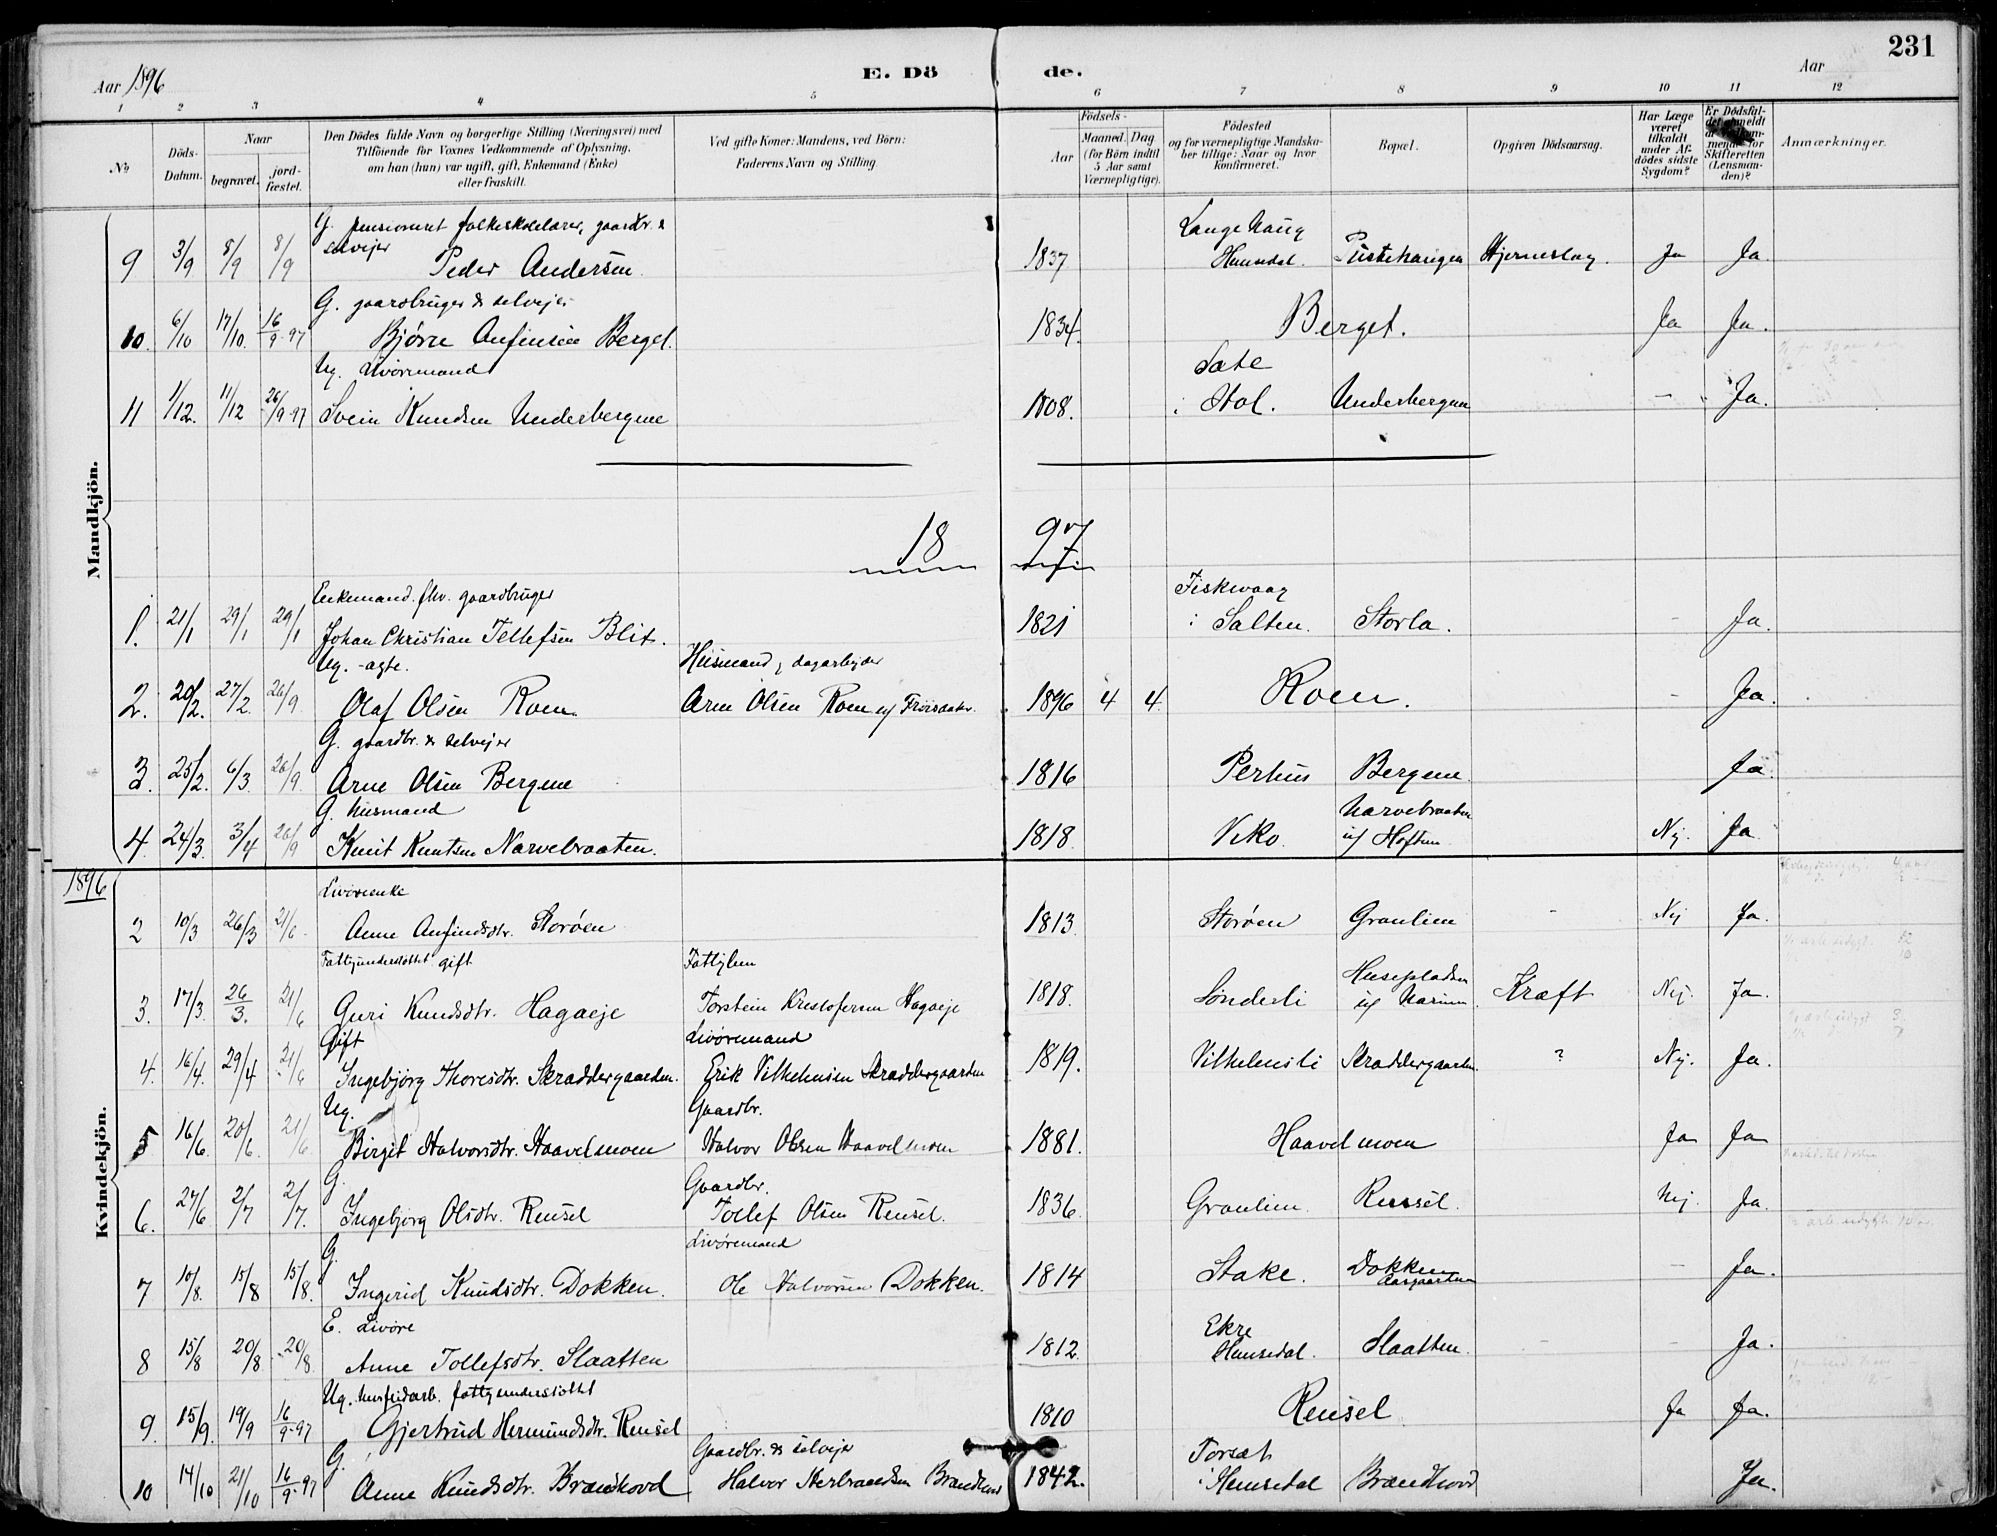 231
Aar 1896
E. Dö de.
Aar
1 2 3 4 5 6 7 8 9 10 11 12
No
Döds-Datum.
Naar
begravet.
jordfæstet.
Den Dödes fulde Navn og borgerlige Stilling (Næringsvei) med
Tilföiende for Voxnes Vedkommende af Oplysning,
om han (hun) var ugift, gift, Enkemand (Enke)
eller fraskilt.
Ved gifte Koner: Mandens, ved Börn:
Faderens Navn og Stilling.
Födsels-
Aar
Maaned. Dag
(for Börn indtil
5 Aar samt
Værnepligtige).
Födested
og for værnepligtige Mandskaber tillige: Naar og hvor
konfirmeret.
Bopæl.
Opgiven Dödsaarsag.
Har Læge
været
tilkaldt
under Afdödes sidste
Sygdom?
Er Dödsfaldet
Skifteretten
(Lensmanden)?
Anmærkninger.
Mandkjön.
G. pensioneret folkeskolelærer, gaardbr. &
selvejer Langehaug
9 3/9 8/9 8/9 Peder Andersen. 1837 Hemsedal. Hjerneslag. Ja Ja.
G. gaardbruger & selvejer
10. 6/10 17/10. 16/9-97 Bjørne Anfinsen Berget. 1834. Berget. Ja Ja.
Ug. Livøremand Sate
11 1/12. 11/12 26/9-97 Svein Knudsen Underbergene 1808. i Hol. Underbergene - Ja.
18 97
Enkemand. fhv. gaardbruger Fiskvaag
1. 21/1 29/1 29/1 Johan Christian Tellefsen Blit. 1821 i Salten. Storla. - Ja.
Ug. - ægte. Husmand, dagarbejder
2. 20/2. 27/2. 26/9 Olaf Olsen Roen. Arne Olsen Roen 1896 4 4. Roen. - Ja.
G. gaardbr. & selvejer
3. 25/2. 6/3. 26/9. Arne Olsen Bergene 1816 Perhus Bergene. Ja.
G. husmand Narvebraaten
4. 24/3. 3/4 26/9 Knut Knutsen Narvebraaten. 1818. Viko. u/ Hoftun Nej. Ja
1896
Kvindekjön.
Livøreenke
2 10/3 26/3 21/6. Anne Anfindsdtr. Storøen 1813. Storøen Granlien - Nej Ja.
Fattigunderstøttet gift Fattiglem Husepladsen
3. 17/3. 26/3. 21/6 Guri Knudsdtr. Hagaeje Torstein Kristofersen Hagaeje 1818. Sønderli Kræft Nej. Ja.
Gift Livøremand
4. 16/4. 29/4 21/6 Ingebjørg Thoresdtr. Skraddergaarden. Erik Vilhelmsen Skraddergaarden 1819. Vilhelmsli Skraddergaarden. ? Nej. Ja.
Ug. Gaardbr.
5 16/6. 20/6. 21/6. Birgit Halvorsdtr. Haavelmoen Halvor Olsen Haavelmoen 1881. Haavelmoen Ja Ja
G. Gaardbr.
6. 27/6 2/7 2/7. Ingebjørg Olsdtr. Reusel Tollef Olsen Reusel. 1836. Granlien. Reusel. Nej Ja.
G. Livøremand
7 10/8. 15/8 15/8. Ingerid Knudsdtr. Dokken. Ole Halvorsen Dokken. 1814 Stake. Dokken - Ja.
E. Livøre Ekre
8 15/8 20/8 20/8. Anne Tollefsdtr. Slaatten 1812. Hemsedal. Slaatten. - - Ja.
Ug. fattigunderstøttet
9. 15/9. 19/9 16/9-97 Gjertrud Hermundsdtr. Reusel 1810 Reusel Ja Ja.
G. Gaardbr. & selvejer Torset
10 14/10 21/10 16/9-97 Anne Knudsdtr. Brandhovd Halvor Herbrandsen Brandhovd 1842. i Hemsedal Brandhovd Ja.